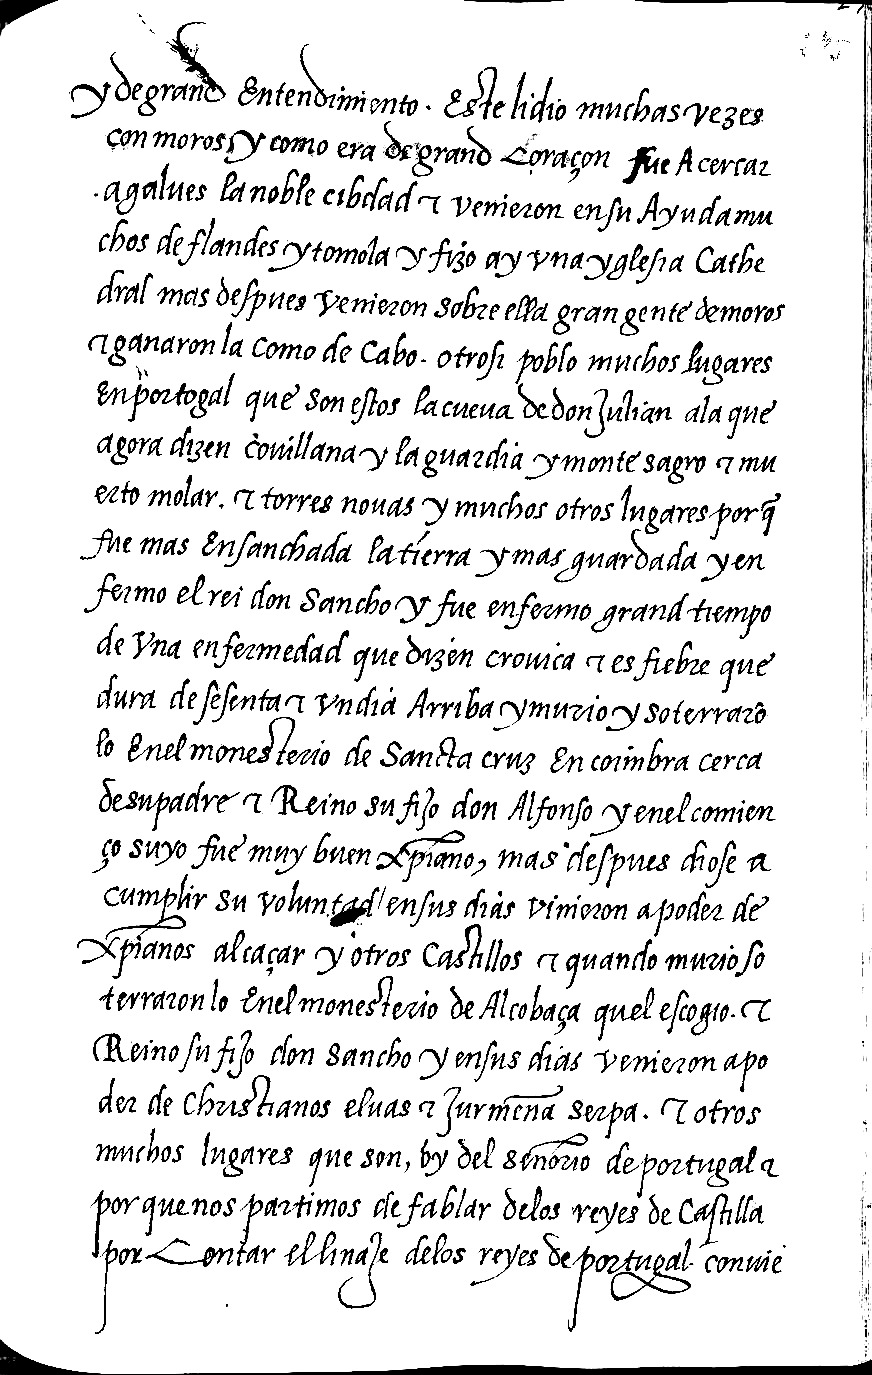 y de grand Entendimiento. Este lidio muchas vezes
con moros, y como era de grand Coraçon fue A cercar
agalues la noble cibdad ⁊ venieron en su Ayuda mu
chos de flandes y tomola y fizo ay vna yglesia Cathe
dral mas despues venieron sobre ella gran gente de moros
⁊ ganaron la como de Cabo. otrosi poblo muchos lugares
En portogal que son estos la cueua de don Julian ala que
agora dizen couillana y la guardia y monte sagro ⁊ mu
erto molar. ⁊ torres nouas y muchos otros lugares por q̃
fue mas Ensanchada la tierra y mas guardada y en
fermo el rei don Sancho y fue enfermo grand tiempo
de vna enfermedad que dizen cronica ⁊ es fiebre que
dura de sesenta ⁊ vn dia Arriba y murio y soterraro
lo Enel monesterio de Sancta cruz En coimbra cerca
de su padre ⁊ Reino su fijo don Alfonso y enel comien
ço suyo fue muy buen xp̃iano, mas despues diose a
cumplir su voluntad en sus dias vinieron a poder de
xp̃ianos alcaçar y otros Castillos ⁊ quando murio so
terraron lo Enel monesterio de Alcobaça quel escogio. ⁊
Reino su fijo don Sancho y en sus dias venieron a po
der de Christianos eluas ⁊ Jurmẽna serpa. ⁊ otros
muchos lugares que son, oy del señorio de portugal ⁊
por que nos partimos de fablar delos reyes de Castilla
por Contar el linaje delos reyes de portugal conuie